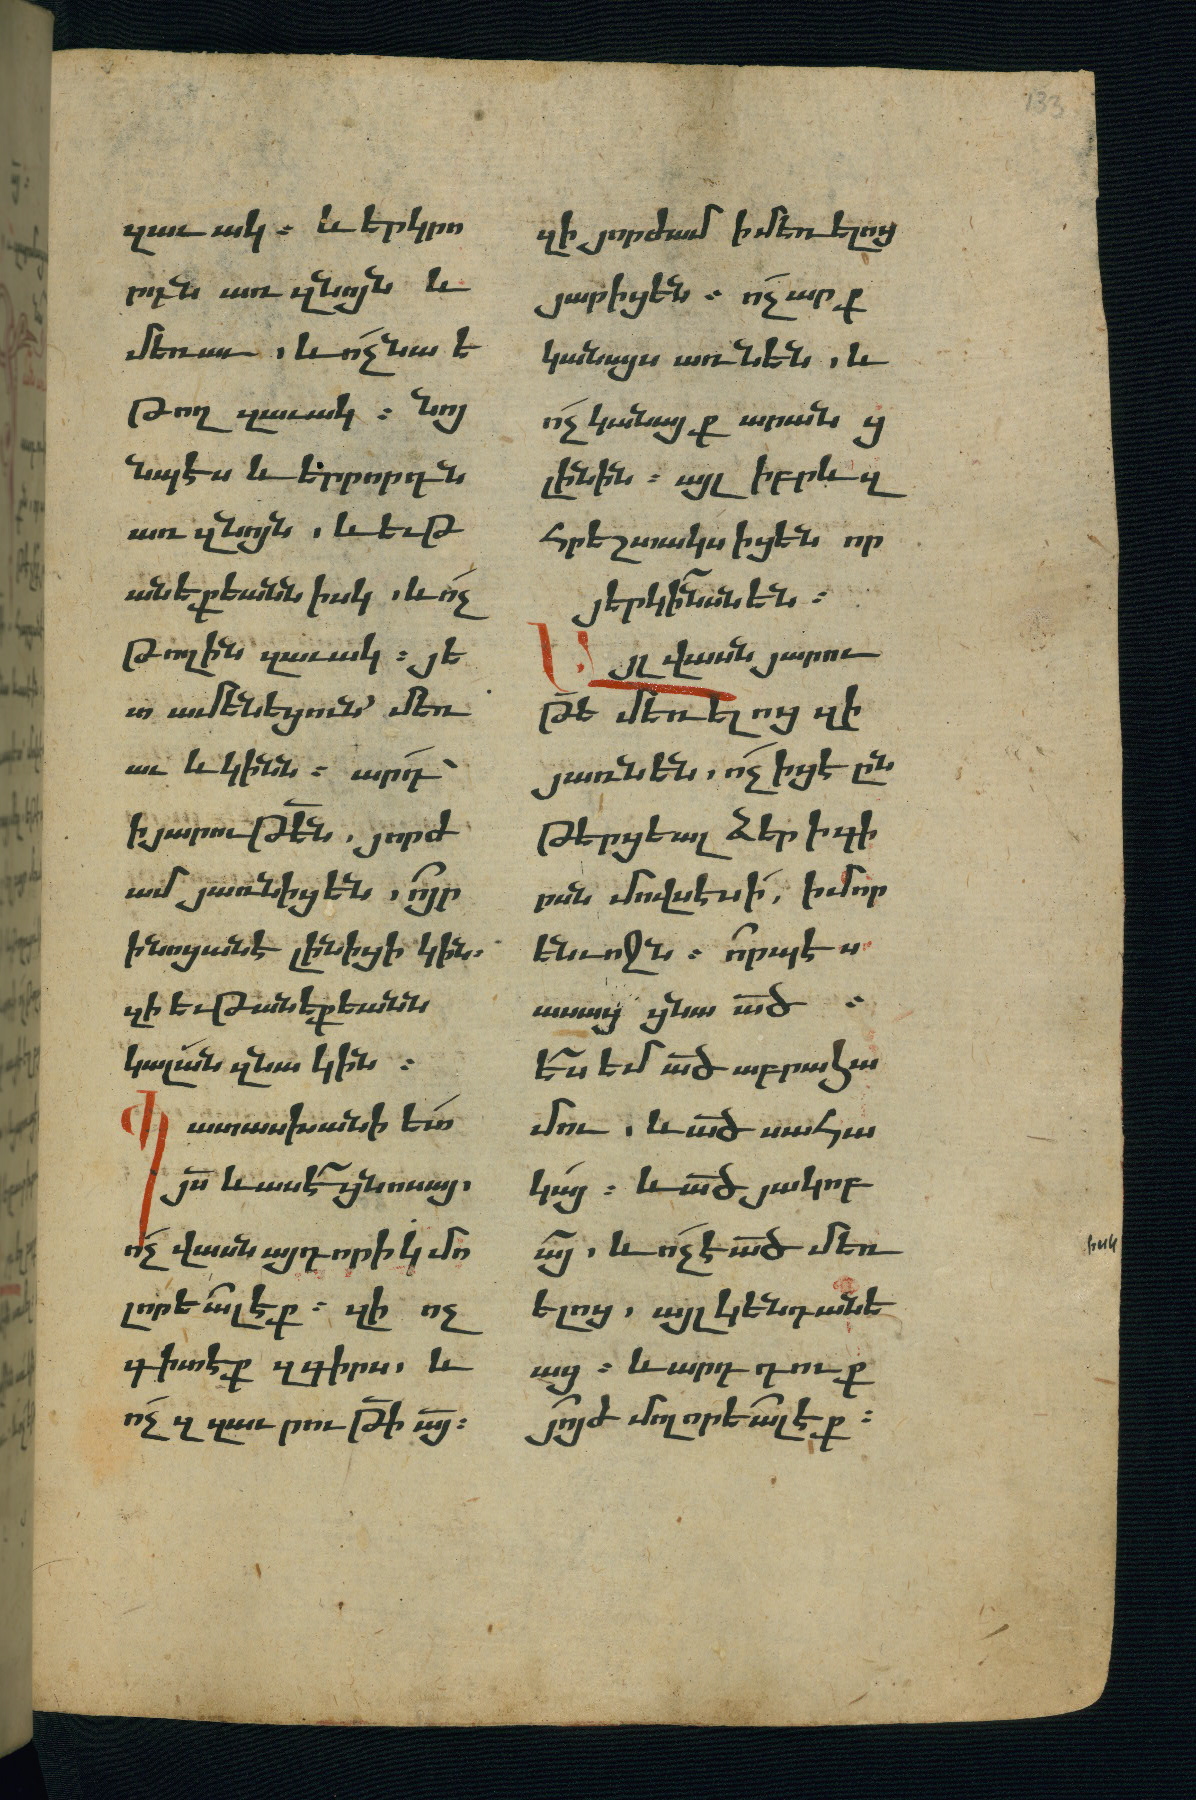 133
զաւակ։ և երկրո
րդն առ զնոյն և
մեռաւ, և ո՛չ նա ե
թող զաւակ։ նոյ
նպէս և երրորդն
առ զնոյն, և եւթ
անեքեանն իսկ, և ո՛չ
թողին զաւակ։ յե
տ ամենեցուն՝ մեռ
աւ և կինն։ արդ՝
ի յարութե̄ն, յորժ
ամ յառնիցեն, ո՞յր
ի նոցանէ լինիցի կին.
զի եւթանեքեանն
կալան զնա կին։
Պատասխանի ետ
յս̄ և ասէ՞ ցնոսայ,
ո՛չ վասն այդորիկ մո
լորեա՞լ էք։ զի ոչ
գիտէք զգիրս, և
ո՛չ զզաւրութի̄ այ̄։
զի յորժամ ի մեռելոց
յարիցեն։ ո՛չ արք
կանայս առնեն, և
ո՛չ կանայք արանց
լինին։ այլ իբրև զ
հրեշտակս իցեն որ
յերկի՞նսն են։
Այլ վասն յարու
թե̄ մեռելոց զի
յառնեն, ո՛չ իցէ ըն
թերցեալ ձեր ի գի
րսն մովսէսի՛, ի մոր
ենւոջն։ ո՞րպէս
ասաց ցնա ած̄ ։
Ե՞ս եմ ած̄ աբրահա
մու, և ած̄ սահա
կա՛յ։ և ած̄ յակոբ
ա՞յ, և ո՛չ է ած̄ մեռ
ելոց, այլ կենդանե
աց։ և արդ դուք
յո՞յժ մոլորեա՞լ էք։
իսկ